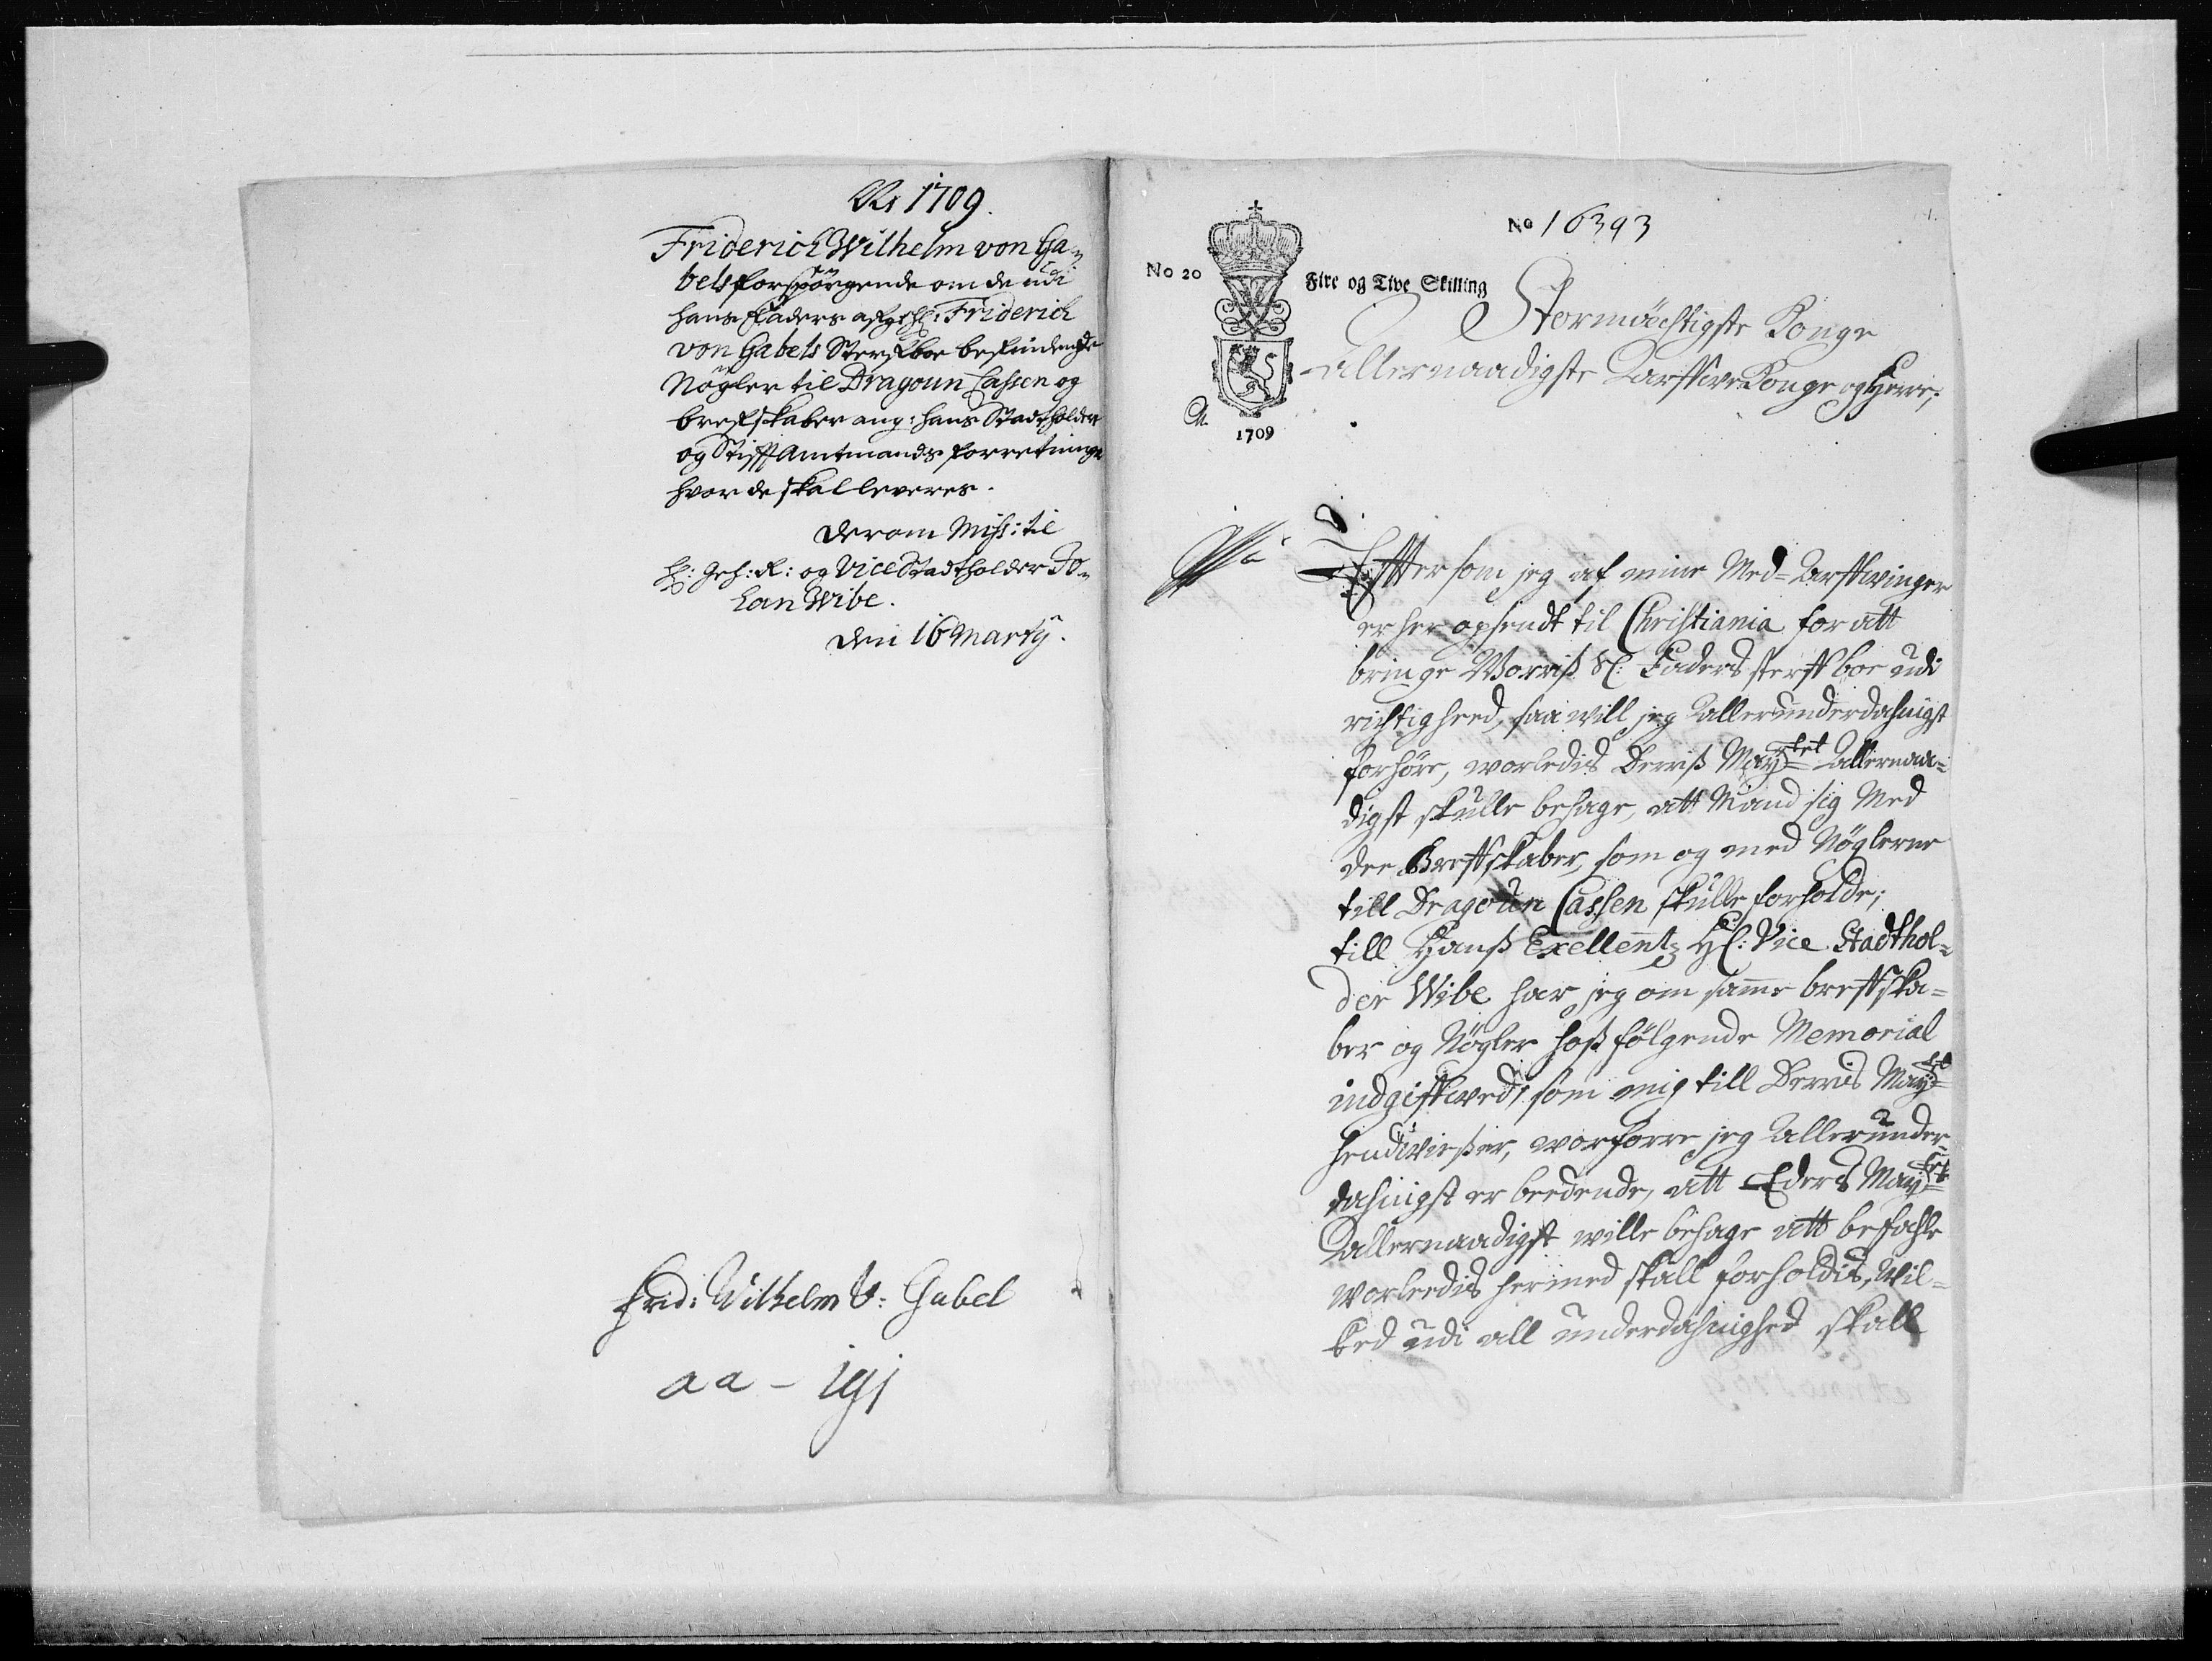 1709.
Friderich Wilhelm von Ga-
bels forspörgende om de udi
hans Faders afgl: Friderich
von Gabels Sterfboe befindende
Nögler til Dragoun Cassen og
brefskaber ang: hans Stadtholder
og Stifftamtmands forretninge
hvor de skal leveres.
Derom Miss: til
H: Geh: R: og Vice Stadtholder Jo-
han Wibe.
Den 16 Marty.
Frid: Wilhelm V: Gabel
aa - 191
No 16393
No 20
Fire og Tive Skilling
1709
Stormächtigste Konge
Allernaadigste Arffve Konge og Herre;
Efftersom jeg af mine Med-Arffvinger
er her opsendt til Christiania for att
bringe Worriß Sl: Faders sterffboe udi
richtigheed, saa will jeg allerunderdahnigst
forhöre, worledis Derriß Maytet Allernaa-
digst skulle behage, att Mand sig Med
dee Breffskaber, som og med Nöglerne
till Dragoun Cassen skulle forholde;
till Hanß Exellentz Hl: Vice Stadthol-
der Wibe har jeg om samme breffska-
ber og Nögler hoßfölgende Memorial
indgiffwed, som mig till Derris Maytt
henvießer, worforre jeg Allerunder-
dahnigst er beedende, att Eders Maytet
Allernaadigst wille behage att befahle
worleedis hermed skall forholdis, Wil-
ked udi all underdahnighed skall